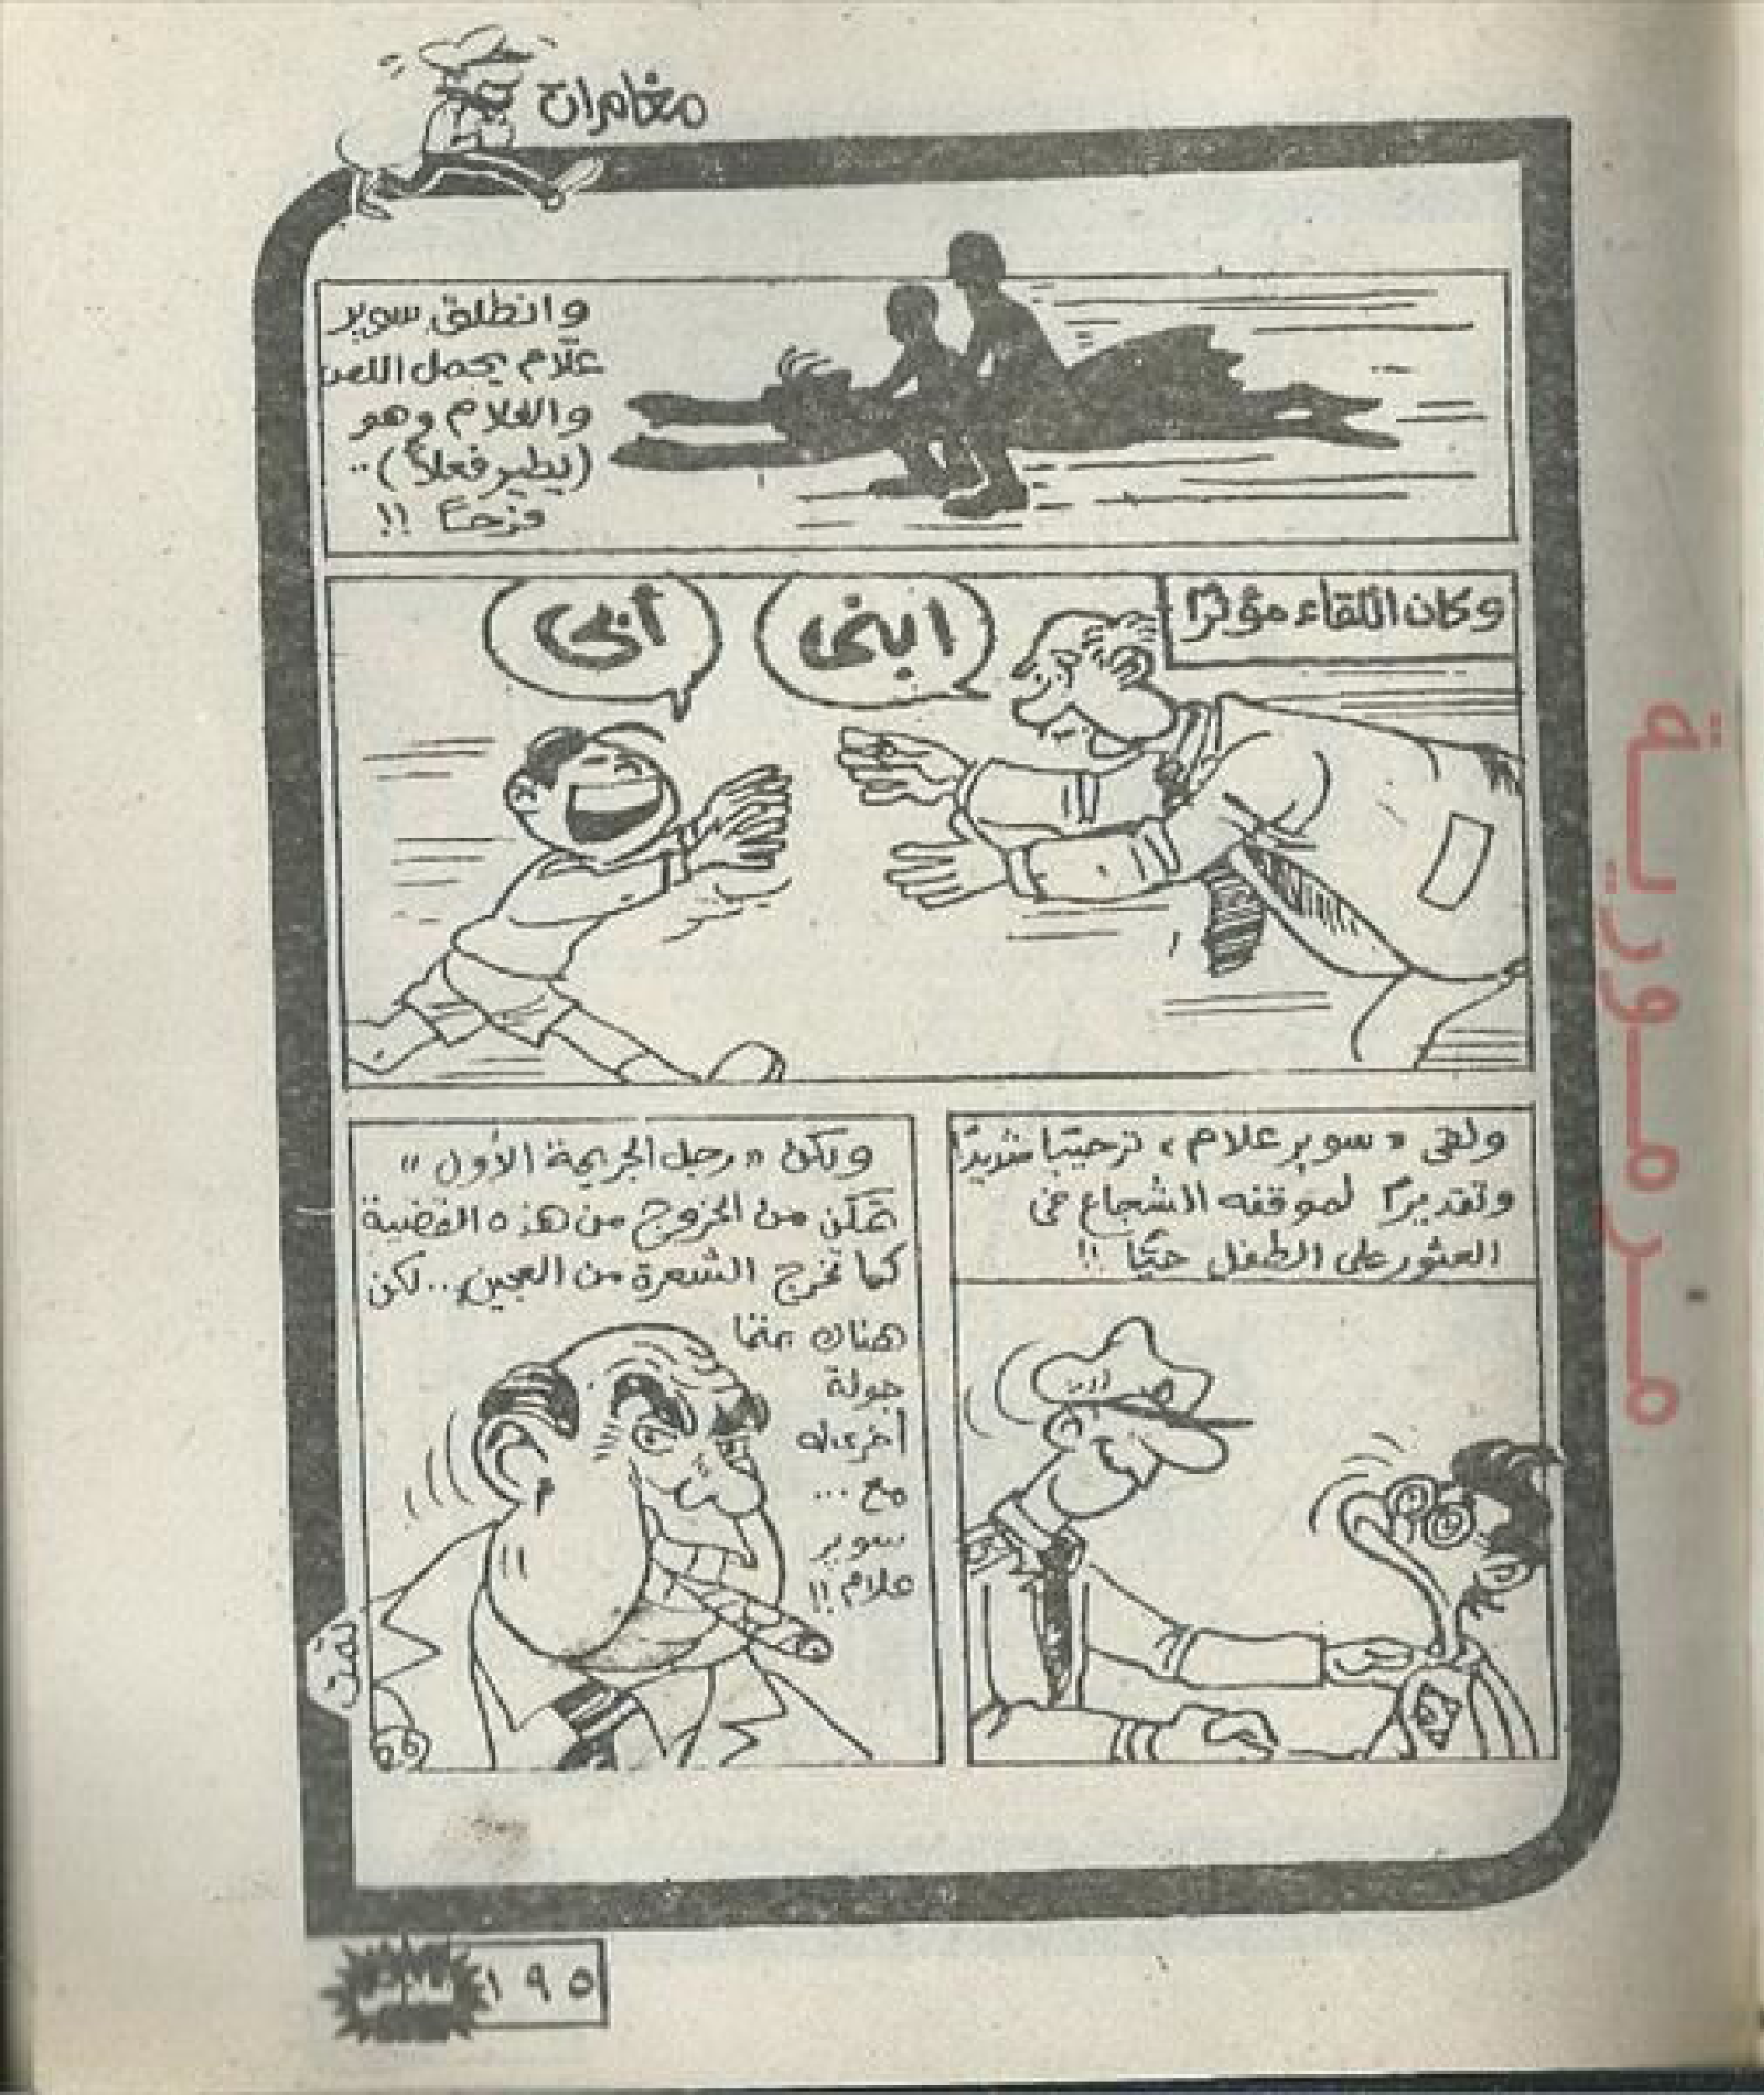 مغامرات
وانطلق سوبر
علّام يحمل اللص
والغلام وهو
(يطير فعلاً) ..
فرحاً !!
وكان اللقاء مؤثرًا
ابنى
أبى
ولقى « سوبر علام » ترحيبًا شديدًا
وتقديرًا لموقفه الشجاع فى
العثور على الطفل حيًا !!
ولكن « رجل الجريمة الأول »
تمكن من الخروج من هذه القضية
كما تخرج الشعرة من العجين .. لكن
هناك حتمًا
جولة
أخرى له
مع ...
سوبر
علام !!
تمت
66
١٩٥
مزمورية